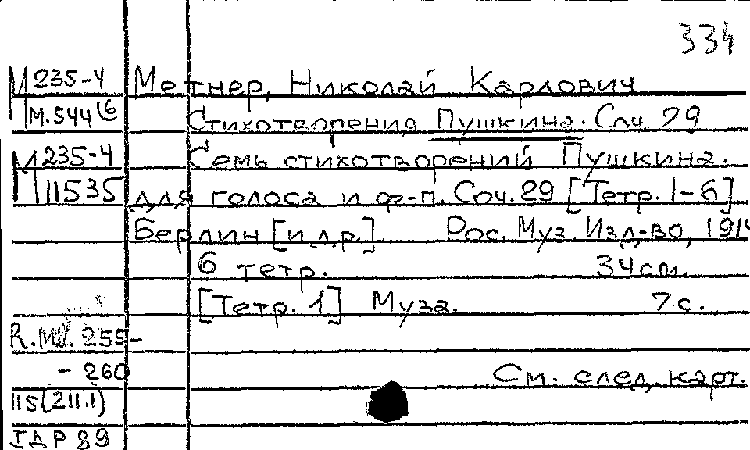 334
М 235-4 Метнер, Николай Карлович
М.544 Стихотворения Пушкина. Соч 29
М 235-4 Семь стихотворений Пушкина.
11535 для голоса и ф-п. Соч. 29 [Тетр. 1-6]
Берлин [и др.] Рос. Муз. Изд-во, 1914
6 тетр. 34 см.
[Тетр. 1] Муза. 7 с.
R.M. 255-
- 260 См. след. карт.
115(211.1)
ГДР 89